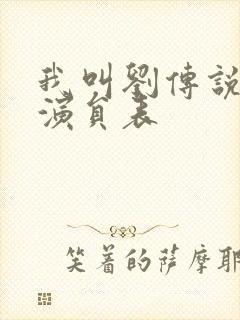 我叫劉傳說
演員表
笑着的薩摩耶